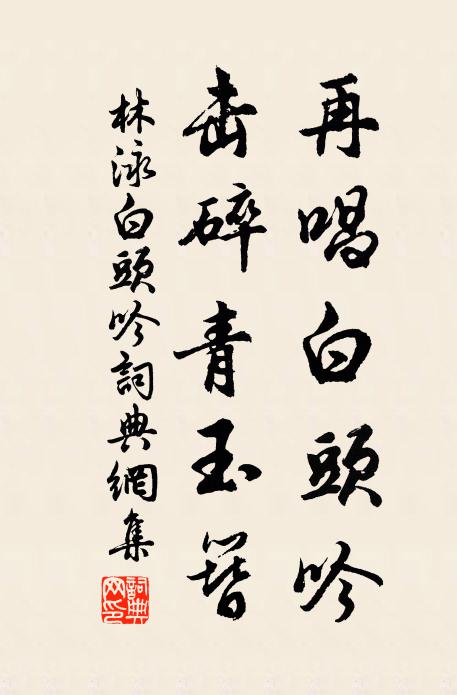 再唱白頭吟
击碎青玉簪
林泳白頭吟詞典網集
詞典网印